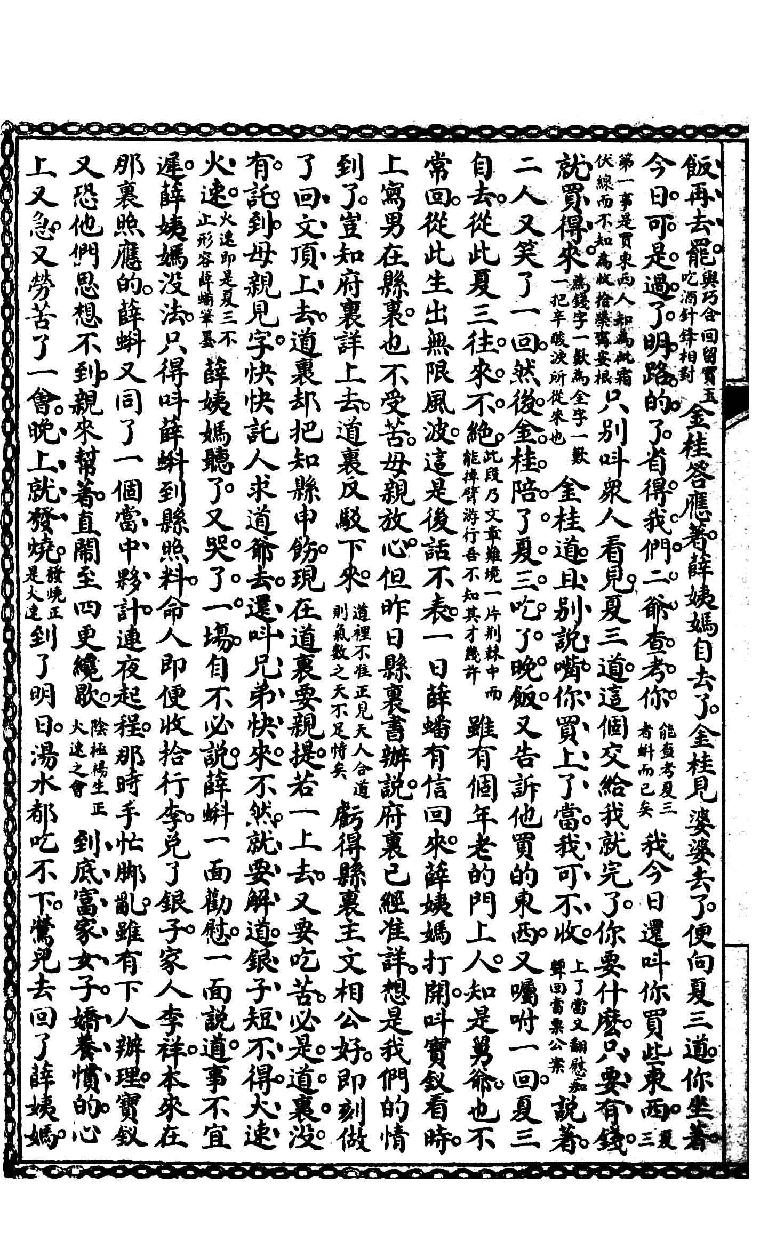 飯再去罷與巧合回留寶玉吃酒針鋒相對金桂答應著薛姨媽自去了金桂見婆婆去了便向夏三道你坐著
今日可是過了明路的了省得我們二爺查考你能盤考夏三者蚪而已矣我今日還叫你買些東西夏三
第一事是買東西人知為砒霜伏線而不知為收拾築場安根只別叫衆人看見夏三道這個交給我就完了你要什麼只要有錢
就買得來為錢字一歎為全字一歎一把辛酸淚所從來也金桂道且別說嘴你買上了當我可不收上了當又翻慰聲回當票公案說著
二人又笑了一回然後金桂陪了夏三吃了晚飯又告訴他買的東西又囑咐一回夏三
自去從此夏三往來不絶此段乃文章難境一片荆棘中而能掉臂游行吾不知其才幾許雖有個年老的門上人知是舅爺也不
常回從此生出無限風波這是後話不表一日薛蟠有信回來薛姨媽打開叫寶釵看時
上寫男在縣裏也不受苦母親放心但昨日縣裏書辦說府裏已經准詳想是我們的情
到了豈知府裏詳上去道裏反駁下來道裡不准正見天人合道則氣數之天不足恃矣虧得縣裏主文相公好即刻做
了回文頂上去道裏却把知縣申飭現在道裏要親提若一上去又要吃苦必是道裏沒
有託到母親見字快快託人求道爺去還叫兄弟快來不然就要解道銀子短不得火速
火速火速即是夏三不止形容薛蟠筆墨薛姨媽聽了又哭了一場自不必說薛蝌一面勸慰一面說道事不宜
遲薛姨媽沒法只得叫薛蝌到縣照料命人即便收拾行李兌了銀子家人李祥本來在
那裏照應的薛蝌又同了一個當中夥計連夜起程那時手忙脚亂雖有下人辦理寶釵
又恐他們思想不到親來幫著直鬧至四更纔歇陰極陽生正火速之會到底富家女子嬌養慣的心
上又急又勞苦了一會晚上就發燒發燒正是火速到了明日湯水都吃不下鶯兒去回了薛姨媽